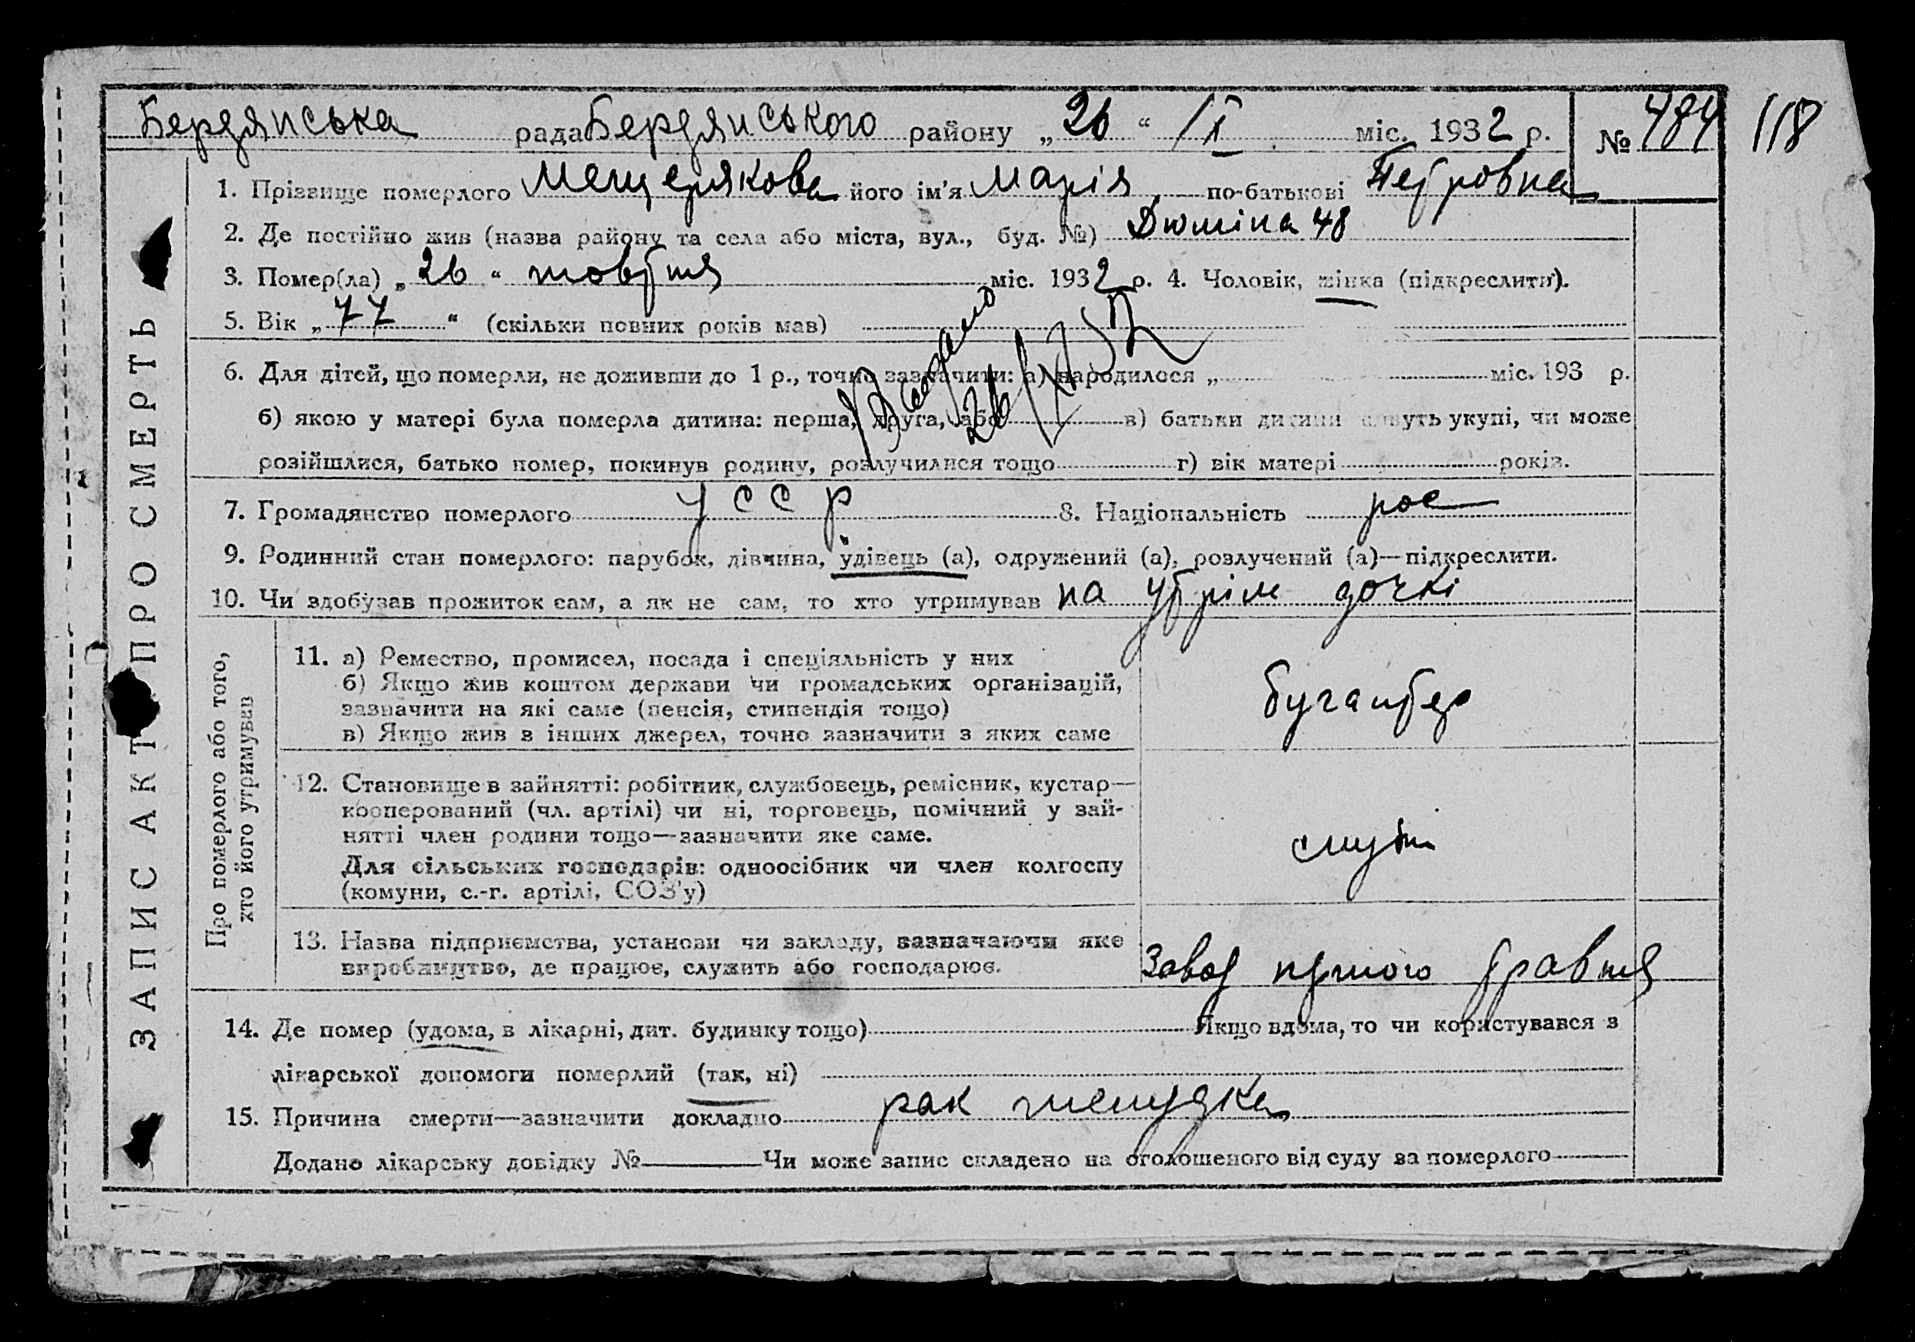 Бердянська рада Бердянського району „26“ /X міс. 1932 р. № 484 118
1. Прізвище померлого Мещерякова його ім'я Марія по-батькові Петровна
2. Де постійно жив (назва району та села або міста, вул., буд. №) Дюміна 48
3. Помер(ла) „26“ жовтня міс. 1932 р. 4. Чоловік, жінка (підкреслити).
5. Вік „77“ (скільки повних років мав)
6. Для дітей, що померли, не доживши до 1 р., точно зазначити: а) народилося „ міс. 193 р.
б) якою у матері була померла дитина: перша, друга, або в) батьки дитини живуть укупі, чи може
розійшлися, батько помер, покинув родину, розлучилися тощо г) вік матері років.
7. Громадянство померлого УССР 8. Національність рос
9. Родинний стан померлого: парубок, дівчина, удівець (а), одружений (а), розлучений (а)—підкреслити.
10. Чи здобував прожиток сам, а як не сам, то хто утримував на утрім дочкі
ЗАПИС АКТУ ПРО СМЕРТЬ
Про померлого або того,
хто його утримував
11. а) Ремество, промисел, посада і спеціяльність у них
б) Якщо жив коштом держави чи громадських організацій,
зазначити на які саме (пенсія, стипендія тощо)
в) Якщо жив в інших джерел, точно зазначити з яких саме
бугалтер
12. Становище в зайнятті: робітник, службовець, ремісник, кустар—
кооперований (чл. артілі) чи ні, торговець, помічний у зай-
нятті член родини тощо—зазначити яке саме.
Для сільських господарів: одноосібник чи член колгоспу
(комуни, с.-г. артілі, СОЗ'у)
служ
13. Назва підприємства, установи чи закладу, зазначаючи яке
виробництво, де працює, служить або господарює.
Завод першого травня
14. Де помер (удома, в лікарні, дит. будинку тощо) Якщо вдома, то чи користувався з
лікарської допомоги померлий (так, ні)
15. Причина смерти—зазначити докладно рак желудка
Додано лікарську довідку № Чи може запис складено на оголошеного від суду за померлого